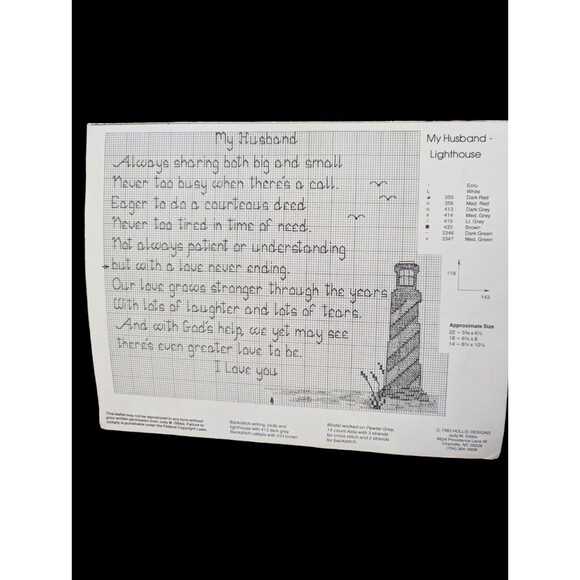 My Husband
Always sharing both big and small
Never too busy when there's a call.
Eager to do a courteous deed
Never too tired in time of need.
Not always patient or understanding
but with a love never ending.
Our love grows stronger through the years
With lots of laughter and lots of tears.
And with God's help, we yet may see
there's even greater love to be.
I Love you
My Husband -
Lighthouse
Ecru
L White
355 Dark Red
356 Med. Red
413 Dark Grey
x 414 Med. Grey
/ 415 Lt. Grey
■ 433 Brown
3346 Dark Green
3347 Med. Green
118
143
Approximate Size
22 –
18 –
14 –
This leaflet may not be reproduced in any form without
prior written permission from Jody M. Gibbs. Failure to
comply is punishable under the Federal Copyright Laws.
Backstitch writing, birds and
lighthouse with 413 dark grey
Backstitch cattails with 433 brown
Model worked on Pewter Grey,
14 count Aida with 3 strands
for cross stitch and 2 strands
for backstitch.
© 1993 HOLLIE DESIGNS
Jody M. Gibbs
Providence Lane W.
Charlotte, NC
(704)